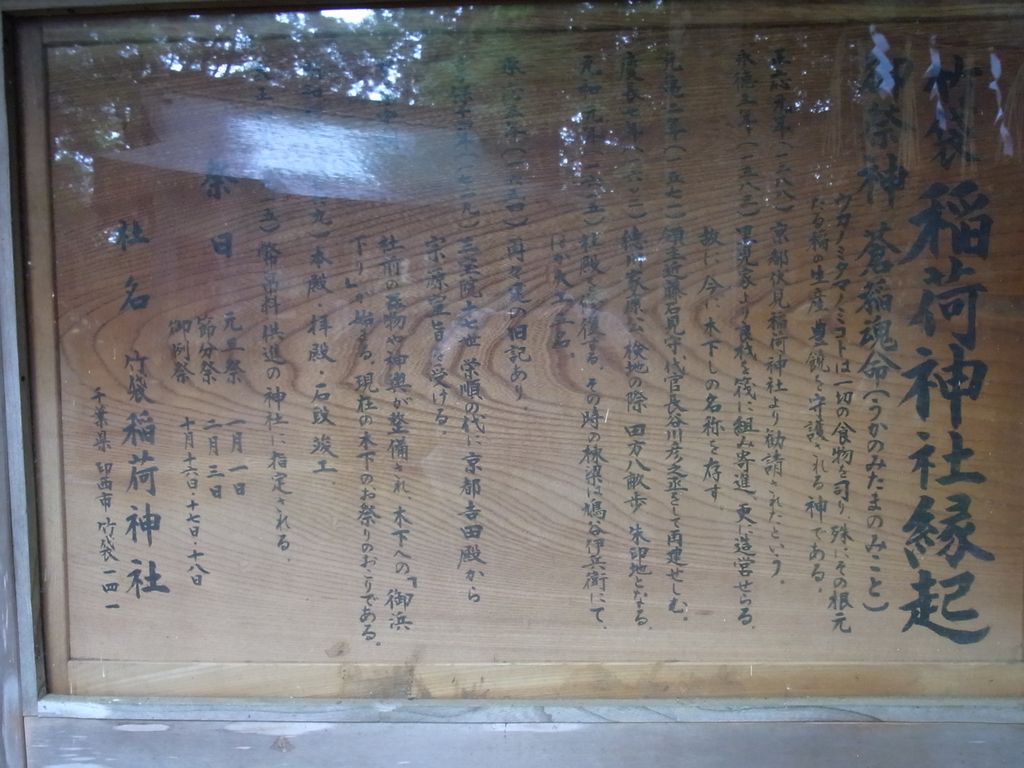 竹袋稲荷神社縁起
御祭神 蒼稲魂命(うかのみたまのみこと)
ウカノミタマノミコトは一切の食物を司り 殊にその根元
たる稲の生産豊饒を守護される神である。
京都伏見稲荷神社より勧請されたという。
永徳三年(一三八三)里見家より良材を筏に組み寄進、更に造営せらる
故に、今、木下しの名称を存す。
元亀二年(一五七一)領主近藤石見守、代官長谷川彦之丞をして再建せしむ。
慶長七年(一六〇二)徳川家康公検地の際 田方八畝歩 朱印地となる。
元和元年(一六一五)社殿を修復する。その時の棟梁は鳩谷伊兵衛にて、
ほか大工三名。
再々建の旧記あり
三宝院十七世 栄順の代に京都吉田殿から
宗源宣旨を受ける。
社前の吞物や神輿が整備され、木下への『御浜
下り』が始まる。現在の木下のお祭りのおこりである。
本殿・拝殿・石段竣工
幣帛料供進の神社に指定される。
祭日
元旦祭 一月一日
節分祭 二月三日
御例祭 十月十六日・十七日・十八日
社名 竹袋稲荷神社
千葉県印西市竹袋一四一